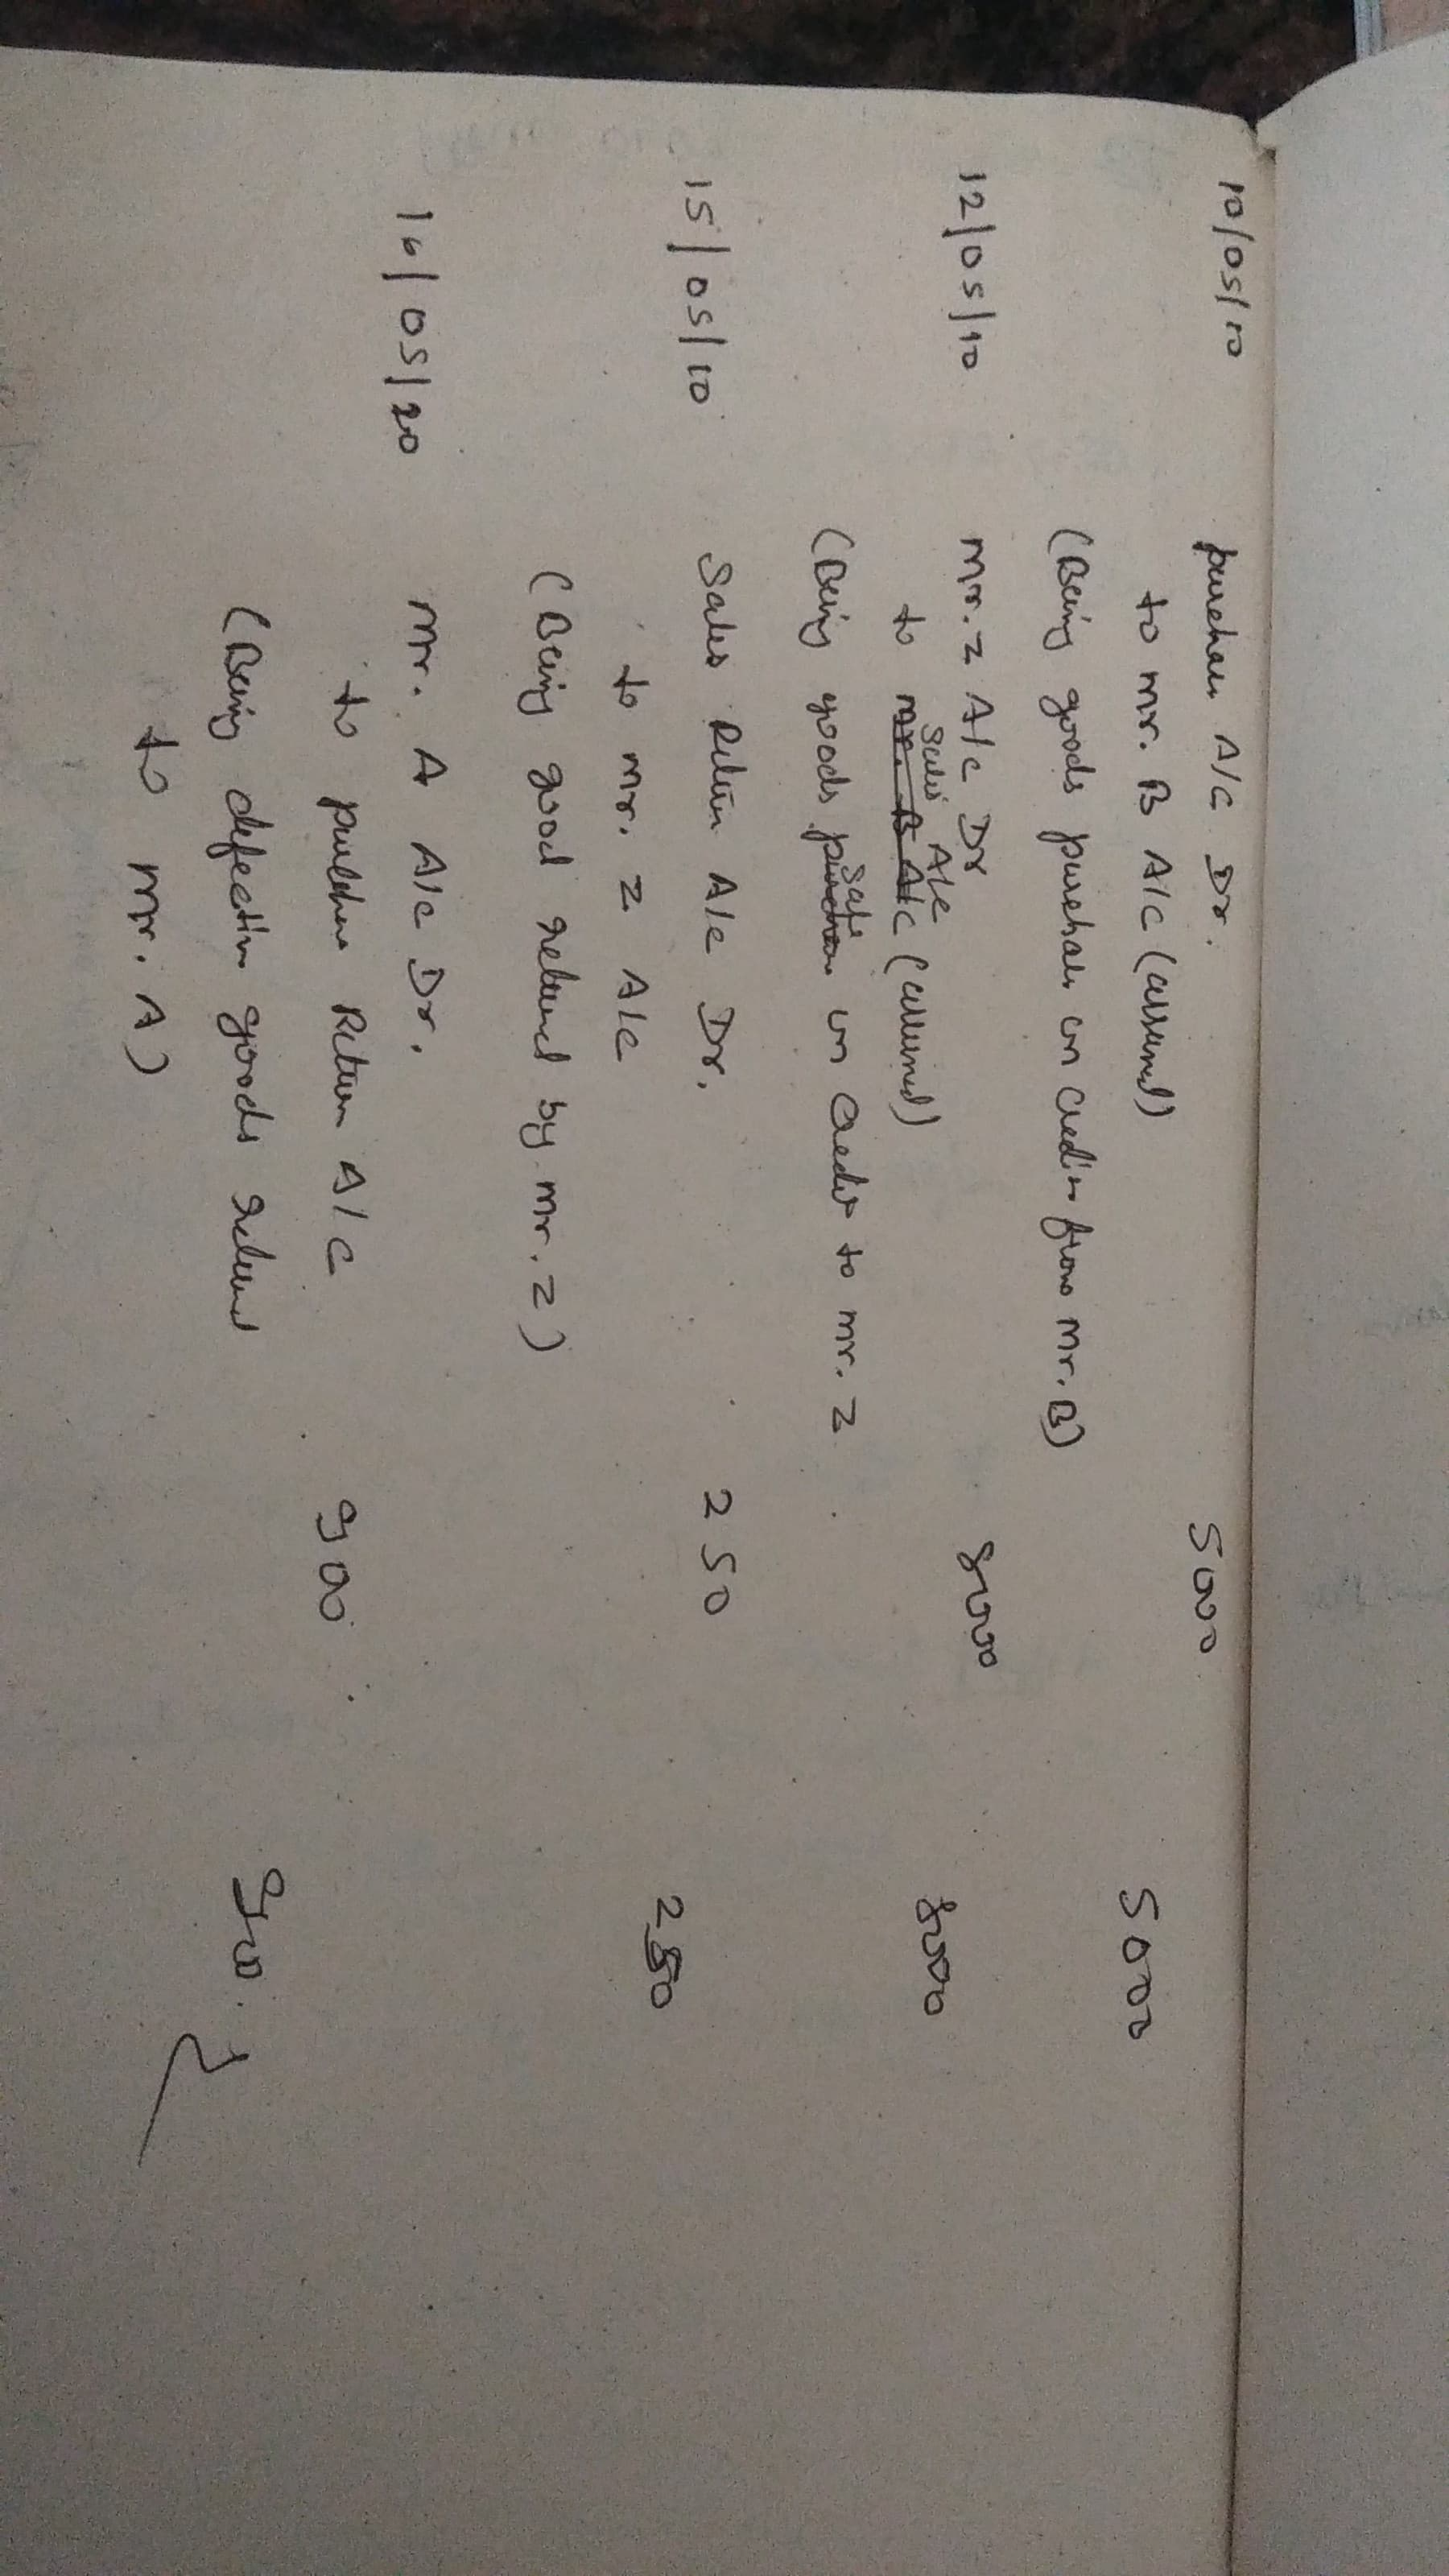 10/05/10 purchase A/C Dr. 5000
to mr. B A/C (assumed) 5000
(Being goods purchase on credit from Mr. B)
12/05/10 mr. Z A/c Dr 8000
to sales A/c (assumed) 8000
(Being goods sale on credit to mr. Z
15/05/10 Sales Return A/c Dr. 250
to mr. Z A/c 250
(Being good returned by mr. Z)
16/05/20 mr. A A/c Dr.
to purchase Return A/C 900
(Being defective goods returned 900
to mr. A)